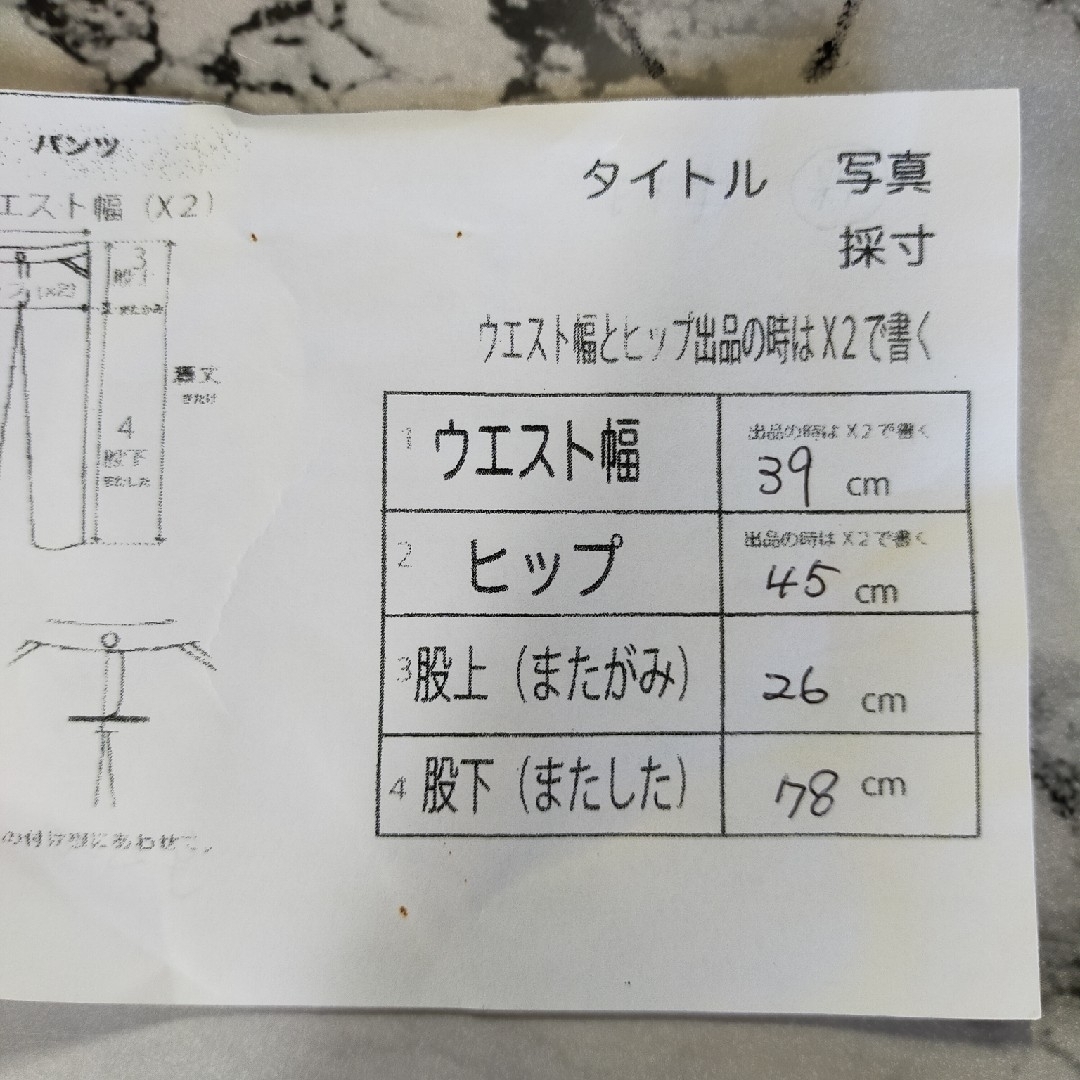 パンツ
エスト幅 (X2)
3
(x2)
着丈
きたけ
4
股下
またした
の付け型にあわせて、
タイトル 写真
採寸
ウエスト幅とヒップ出品の時はX2で書く
1 ウエスト幅 出品の時はX2で書く
39 cm
2 ヒップ 出品の時はX2で書く
45 cm
3 股上 (またがみ) 26 cm
4 股下 (またした) 78 cm